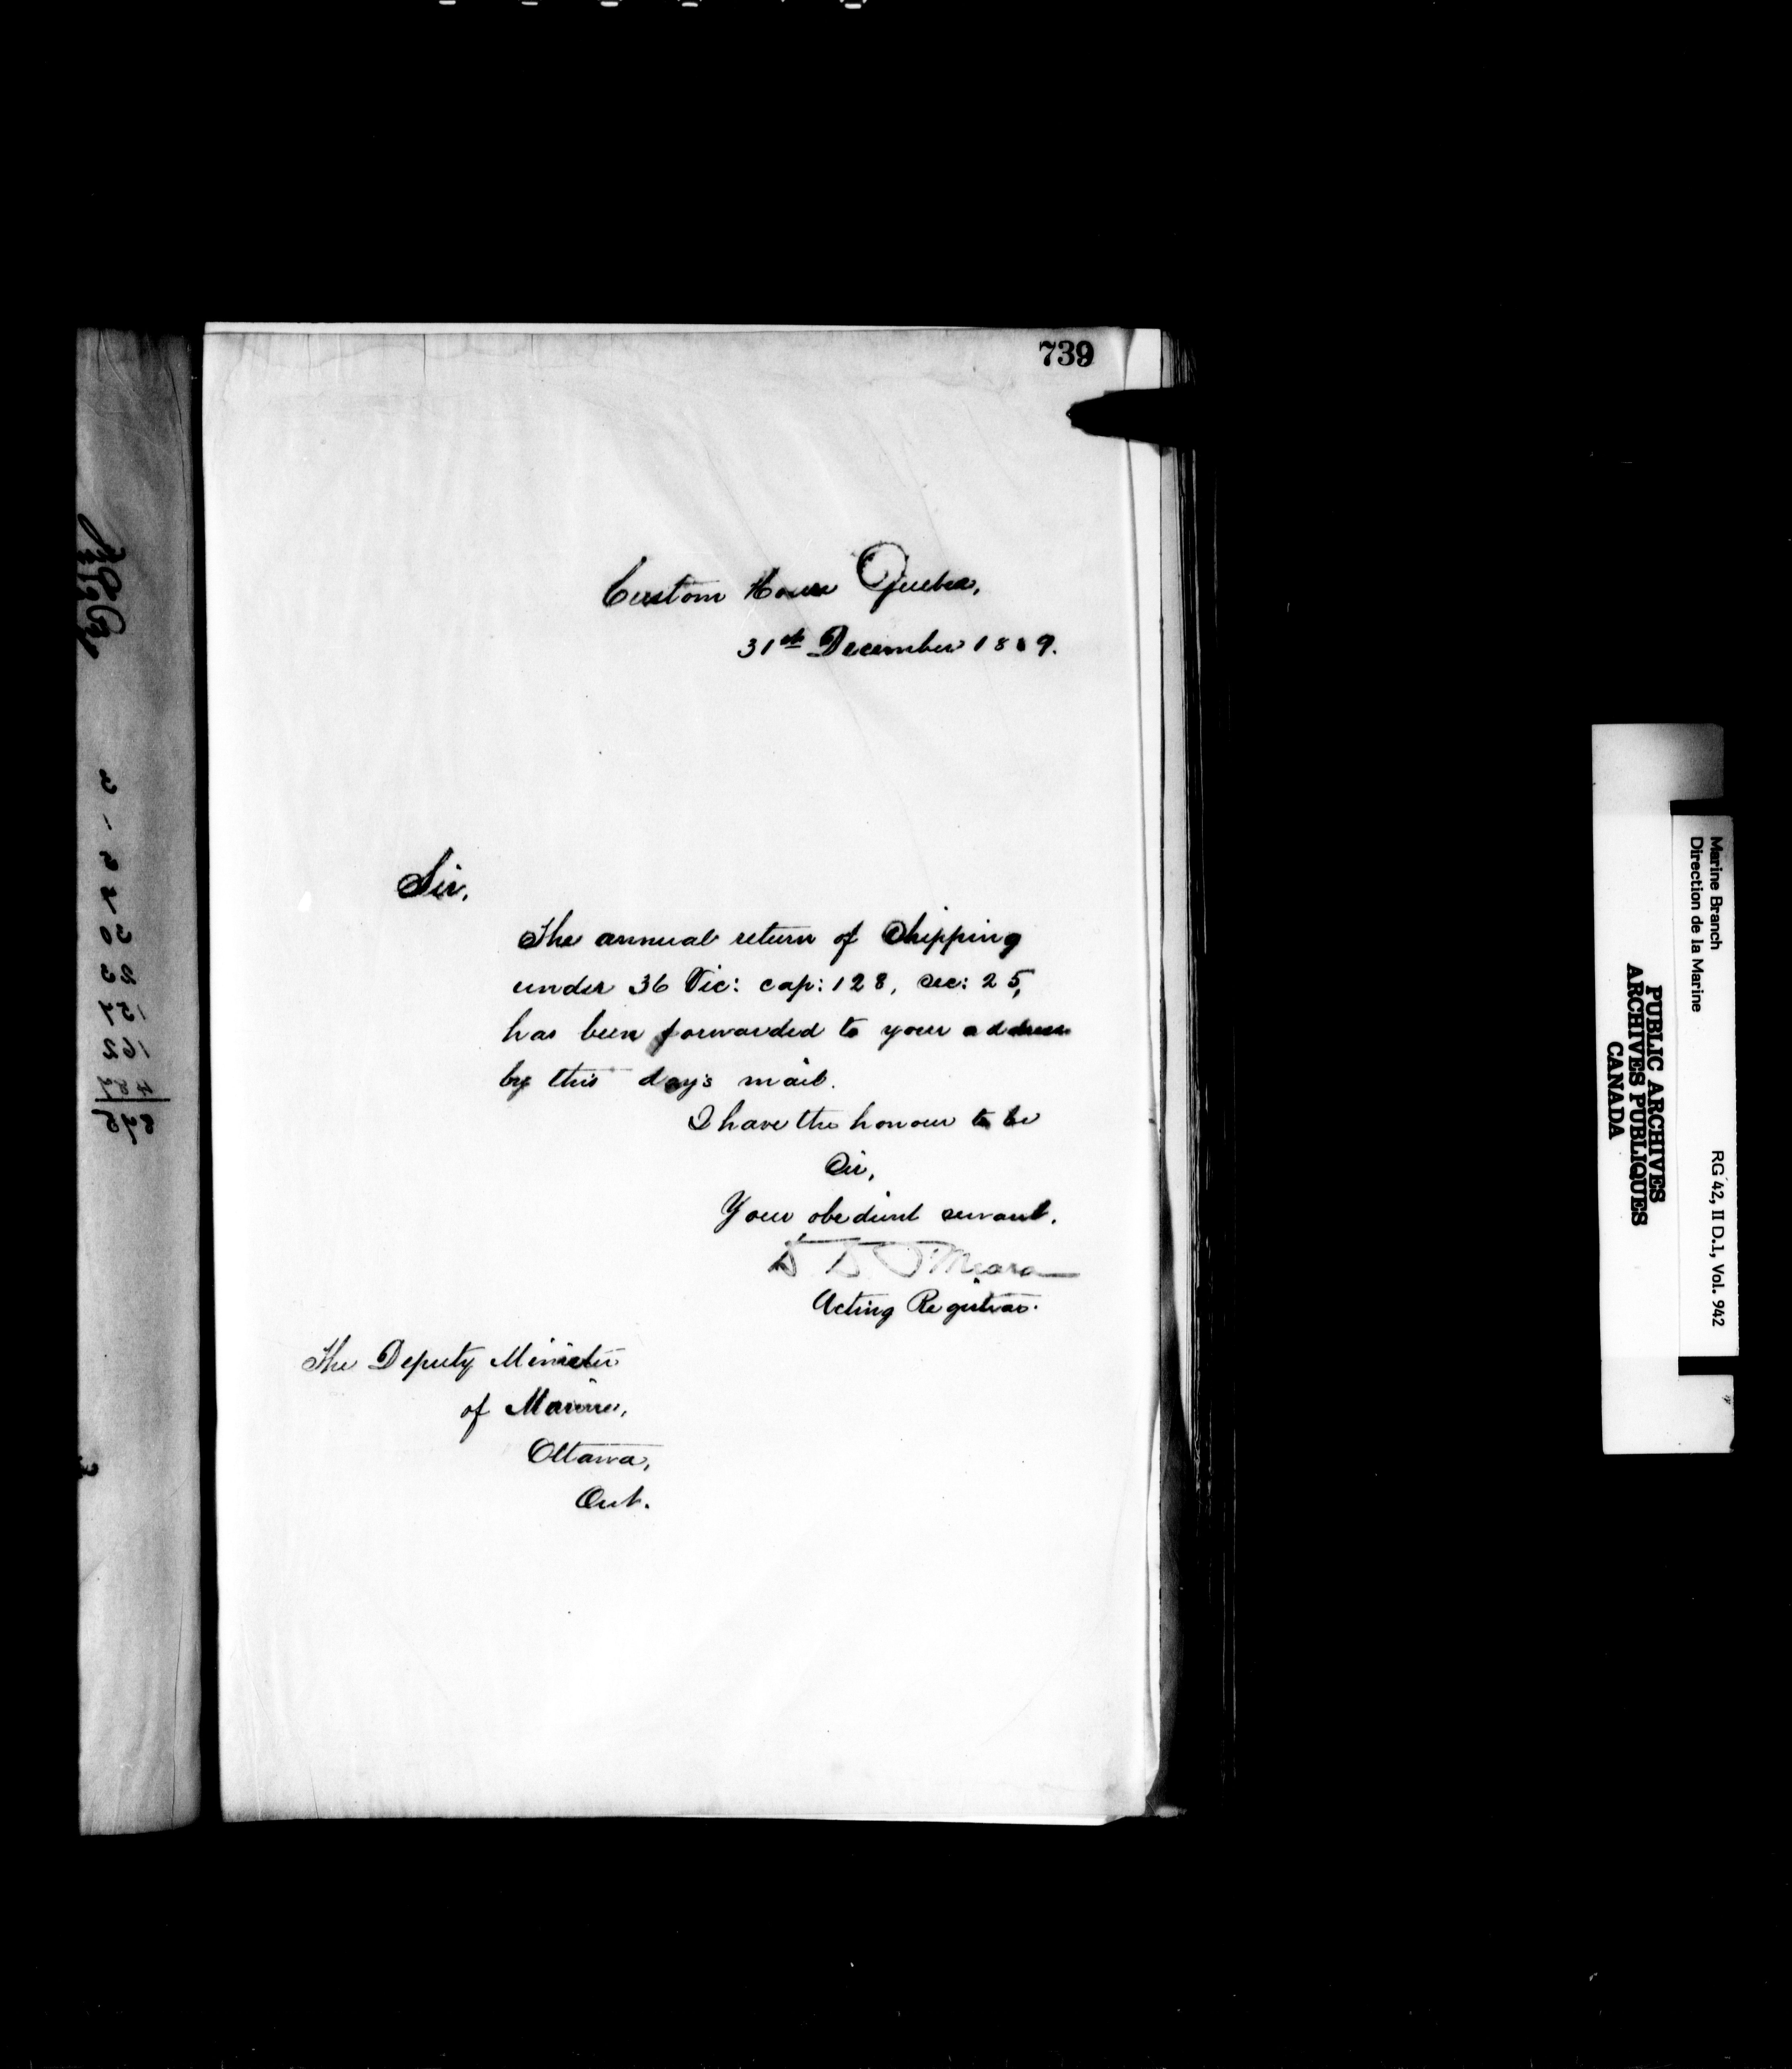 739
Custom House Quebec,
31st December 1889.
Sir,
The annual return of Shipping
under 36 Vic: cap: 128, sec: 25,
has been forwarded to your address
by this day's mail.
I have the honour to be
Sir,
Your obedient servant.
D D O'Meara
Acting Registrar.
The Deputy Minister
of Marine,
Ottawa,
Ont.
Marine Branch
Direction de la Marine
RG 42, II D.1, Vol. 942
PUBLIC ARCHIVES
ARCHIVES PUBLIQUES
CANADA